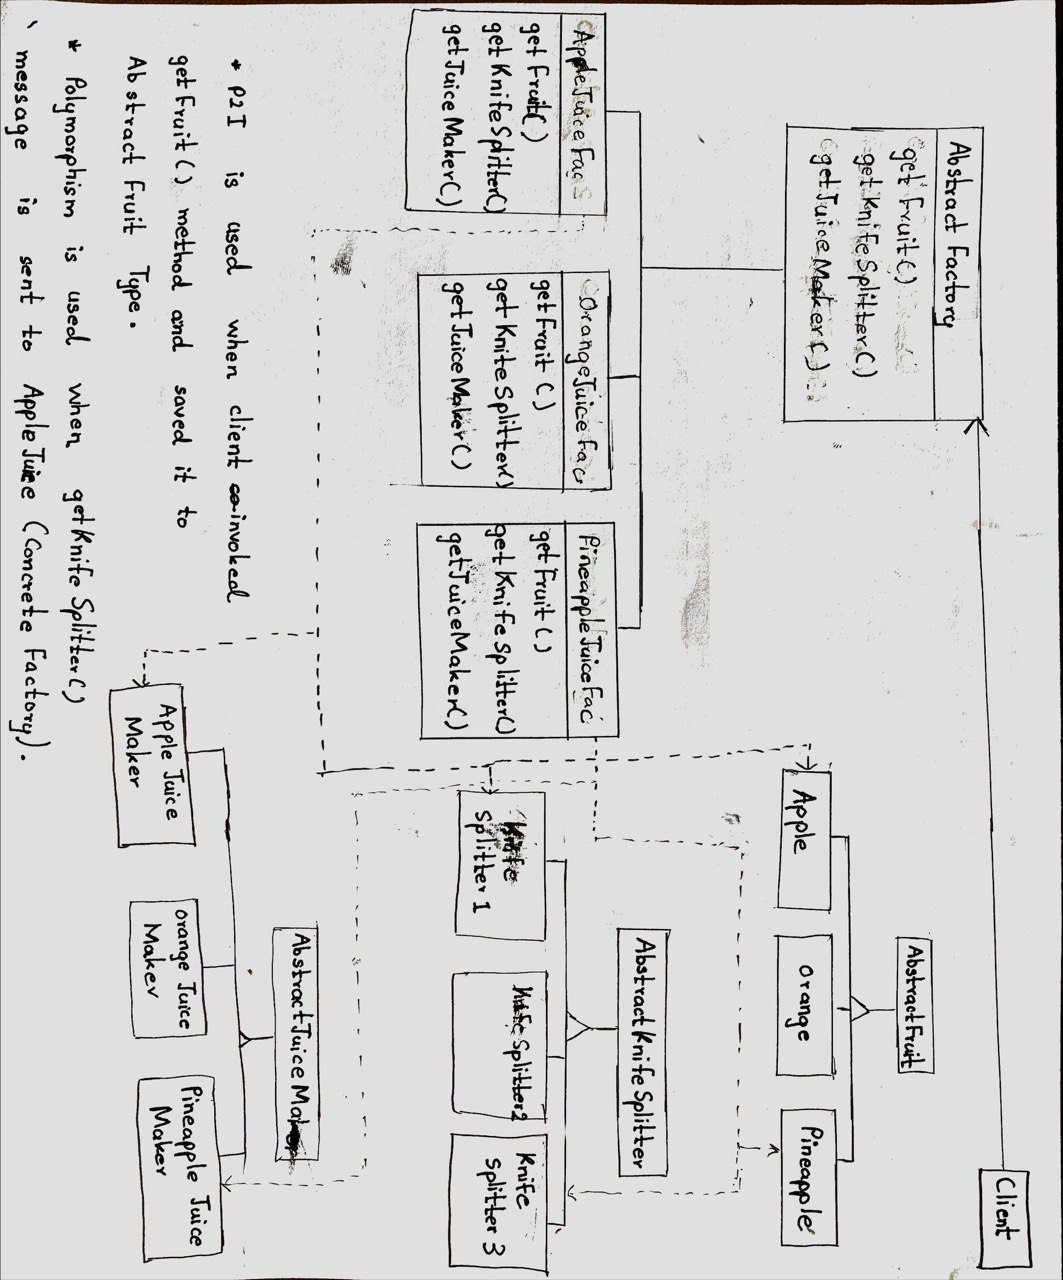 Client
Abstract Factory
get Fruit()
getKnifeSplitter()
getJuiceMaker()
AbstractFruit
Apple
orange
Pineapple
AppleJuiceFac
get Fruit()
getKnifeSplitter()
getJuiceMaker()
OrangeJuice Fac
getFruit ()
get Knife Splitter()
getJuiceMaker()
PineappleJuiceFac
getFruit ()
getKnife Splitter()
getJuiceMaker()
AbstractKnifeSplitter
Knife
Splitter 1
Knife Splitter2
Knife
Splitter 3
AbstractJuiceMaker
Apple Juice
Maker
orange Juice
Maker
Pineapple Juice
Maker
* P2I is used when client invoked
getFruit() method and saved it to
Abstract Fruit Type.
* Polymorphism is used when getKnifeSplitter()
message is sent to AppleJuice (Concrete Factory).